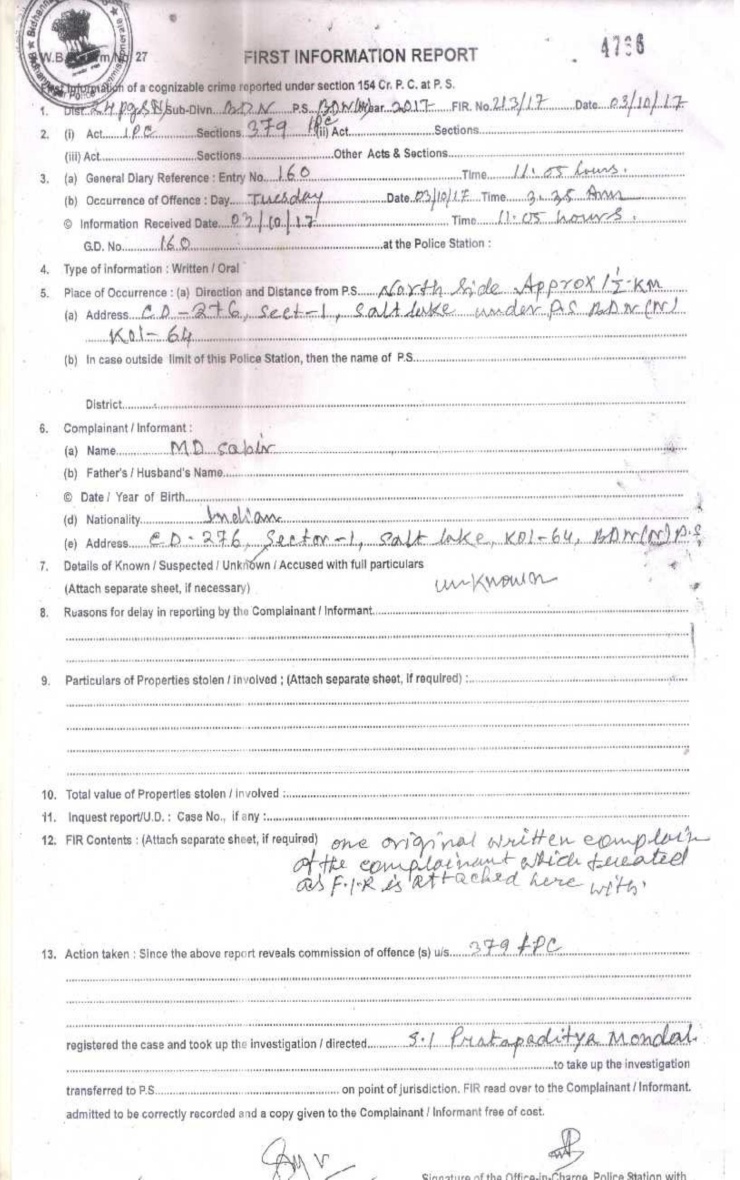 4786
W.B. Form No. 27
FIRST INFORMATION REPORT
First Information of a cognizable crime reported under section 154 Cr. P. C. at P. S.
1. Dist 24 pgs(N) Sub-Divn. BDN P.S. BDN(N) Year 2017 FIR. No. 213/17 Date. 03/10/17
2. (i) Act IPC Sections 379 IPC (ii) Act Sections
(iii) Act Sections Other Acts & Sections
3. (a) General Diary Reference : Entry No. 160 Time 11.05 hours.
(b) Occurrence of Offence : Day Tuesday Date 03/10/17 Time 3.35 Am
© Information Received Date 03/10/17 Time 11.05 hours.
G.D. No. 160 at the Police Station :
4. Type of information : Written / Oral
5. Place of Occurrence : (a) Direction and Distance from P.S. North Side Approx 1½ KM
(a) Address C.D-276, Sect-1, Salt lake under PS BDN(N)
Kol-64
(b) In case outside limit of this Police Station, then the name of P.S.
District
6. Complainant / Informant :
(a) Name MD Sabir
(b) Father's / Husband's Name
© Date / Year of Birth
(d) Nationality Indian
(e) Address C.D-276, Sector-1, Salt lake, Kol-64, BDN(N) P.S
7. Details of Known / Suspected / Unknown / Accused with full particulars
(Attach separate sheet, if necessary) unknown
8. Reasons for delay in reporting by the Complainant / Informant
9. Particulars of Properties stolen / involved ; (Attach separate sheet, if required) :
10. Total value of Properties stolen / involved :
11. Inquest report/U.D. : Case No., if any :
12. FIR Contents : (Attach separate sheet, if required) one original written complain
of the complainant which treated
as F.I.R is attached here with.
13. Action taken : Since the above report reveals commission of offence (s) u/s 379 IPC
registered the case and took up the investigation / directed S.I Pratapaditya Mondal.
to take up the investigation
transferred to P.S. on point of jurisdiction. FIR read over to the Complainant / Informant.
admitted to be correctly recorded and a copy given to the Complainant / Informant free of cost.
Signature of the Office-in-Charge, Police Station with